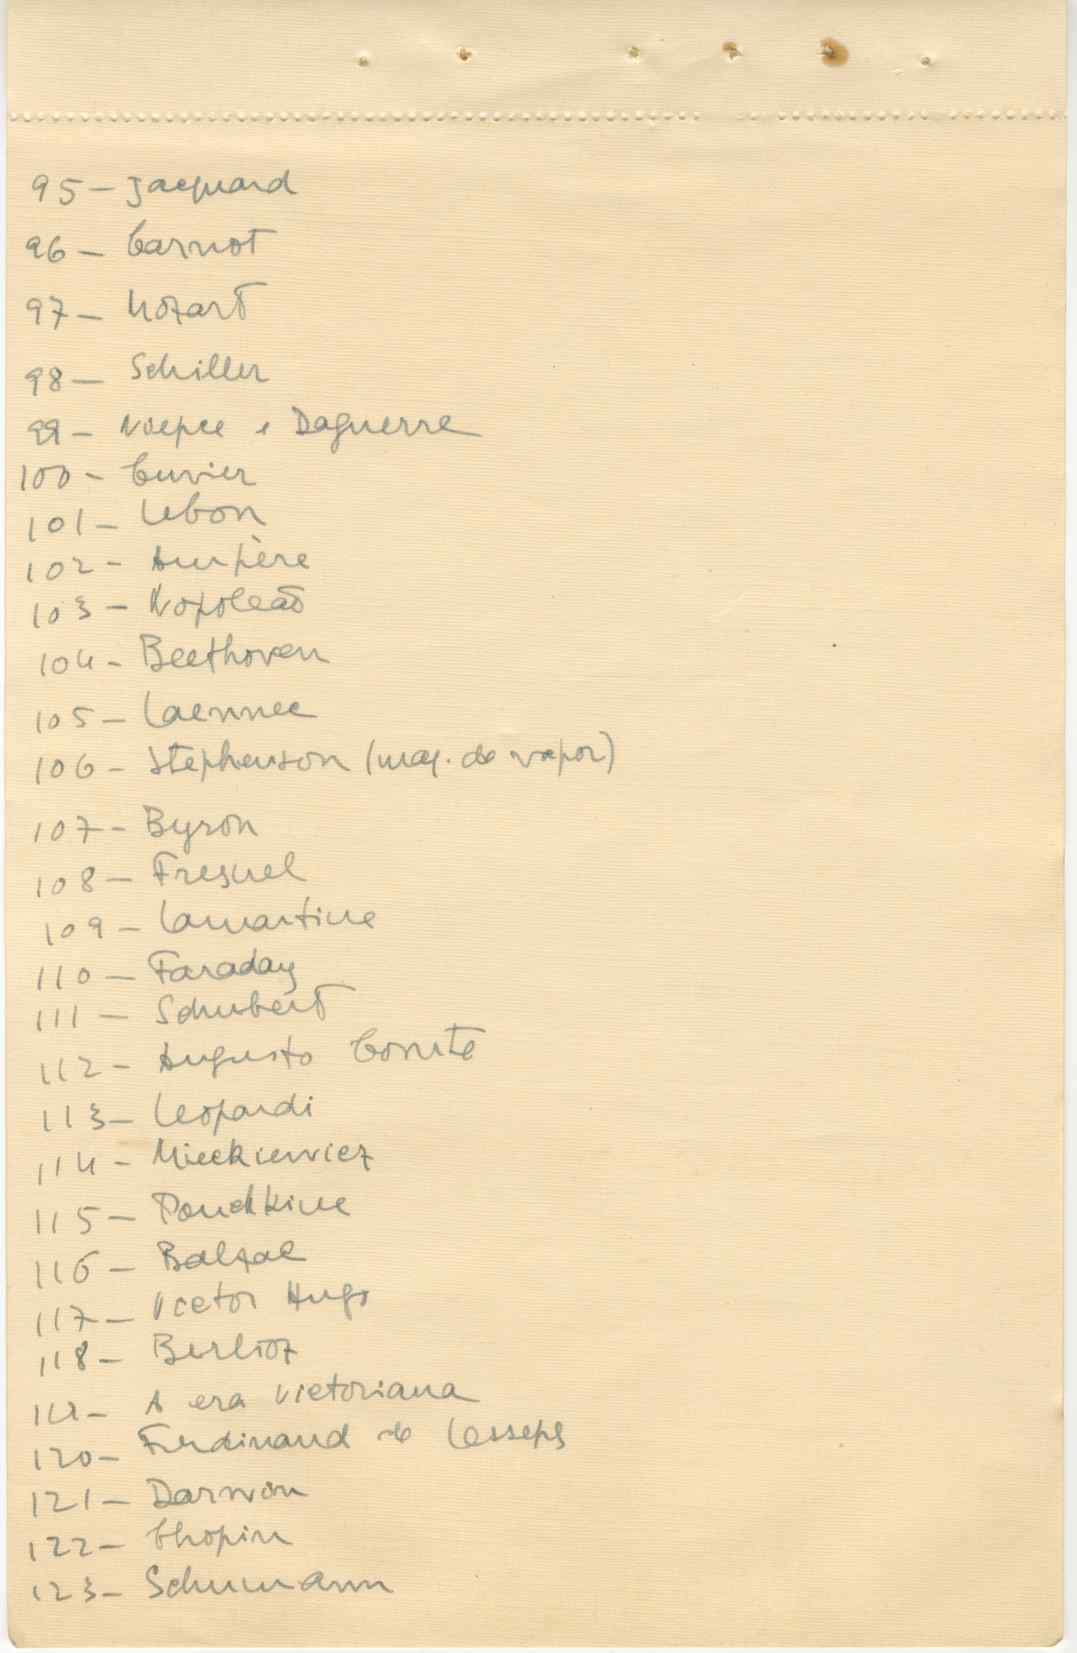 95 - Jacquard
96 - Carnot
97 - Mozart
98 - Schiller
99 - Niepce e Daguerre
100 - Cuvier
101 - Lebon
102 - Ampère
103 - Napoleão
104 - Beethoven
105 - Laennec
106 - Stephenson (maq. de vapor)
107 - Byron
108 - Fresnel
109 - Lamartine
110 - Faraday
111 - Schubert
112 - Augusto Comte
113 - Leopardi
114 - Mickiewicz
115 - Pouchkine
116 - Balzac
117 - Victor Hugo
118 - Berlioz
119 - A era Victoriana
120 - Ferdinand de Lesseps
121 - Darwin
122 - Chopin
123 - Schumann